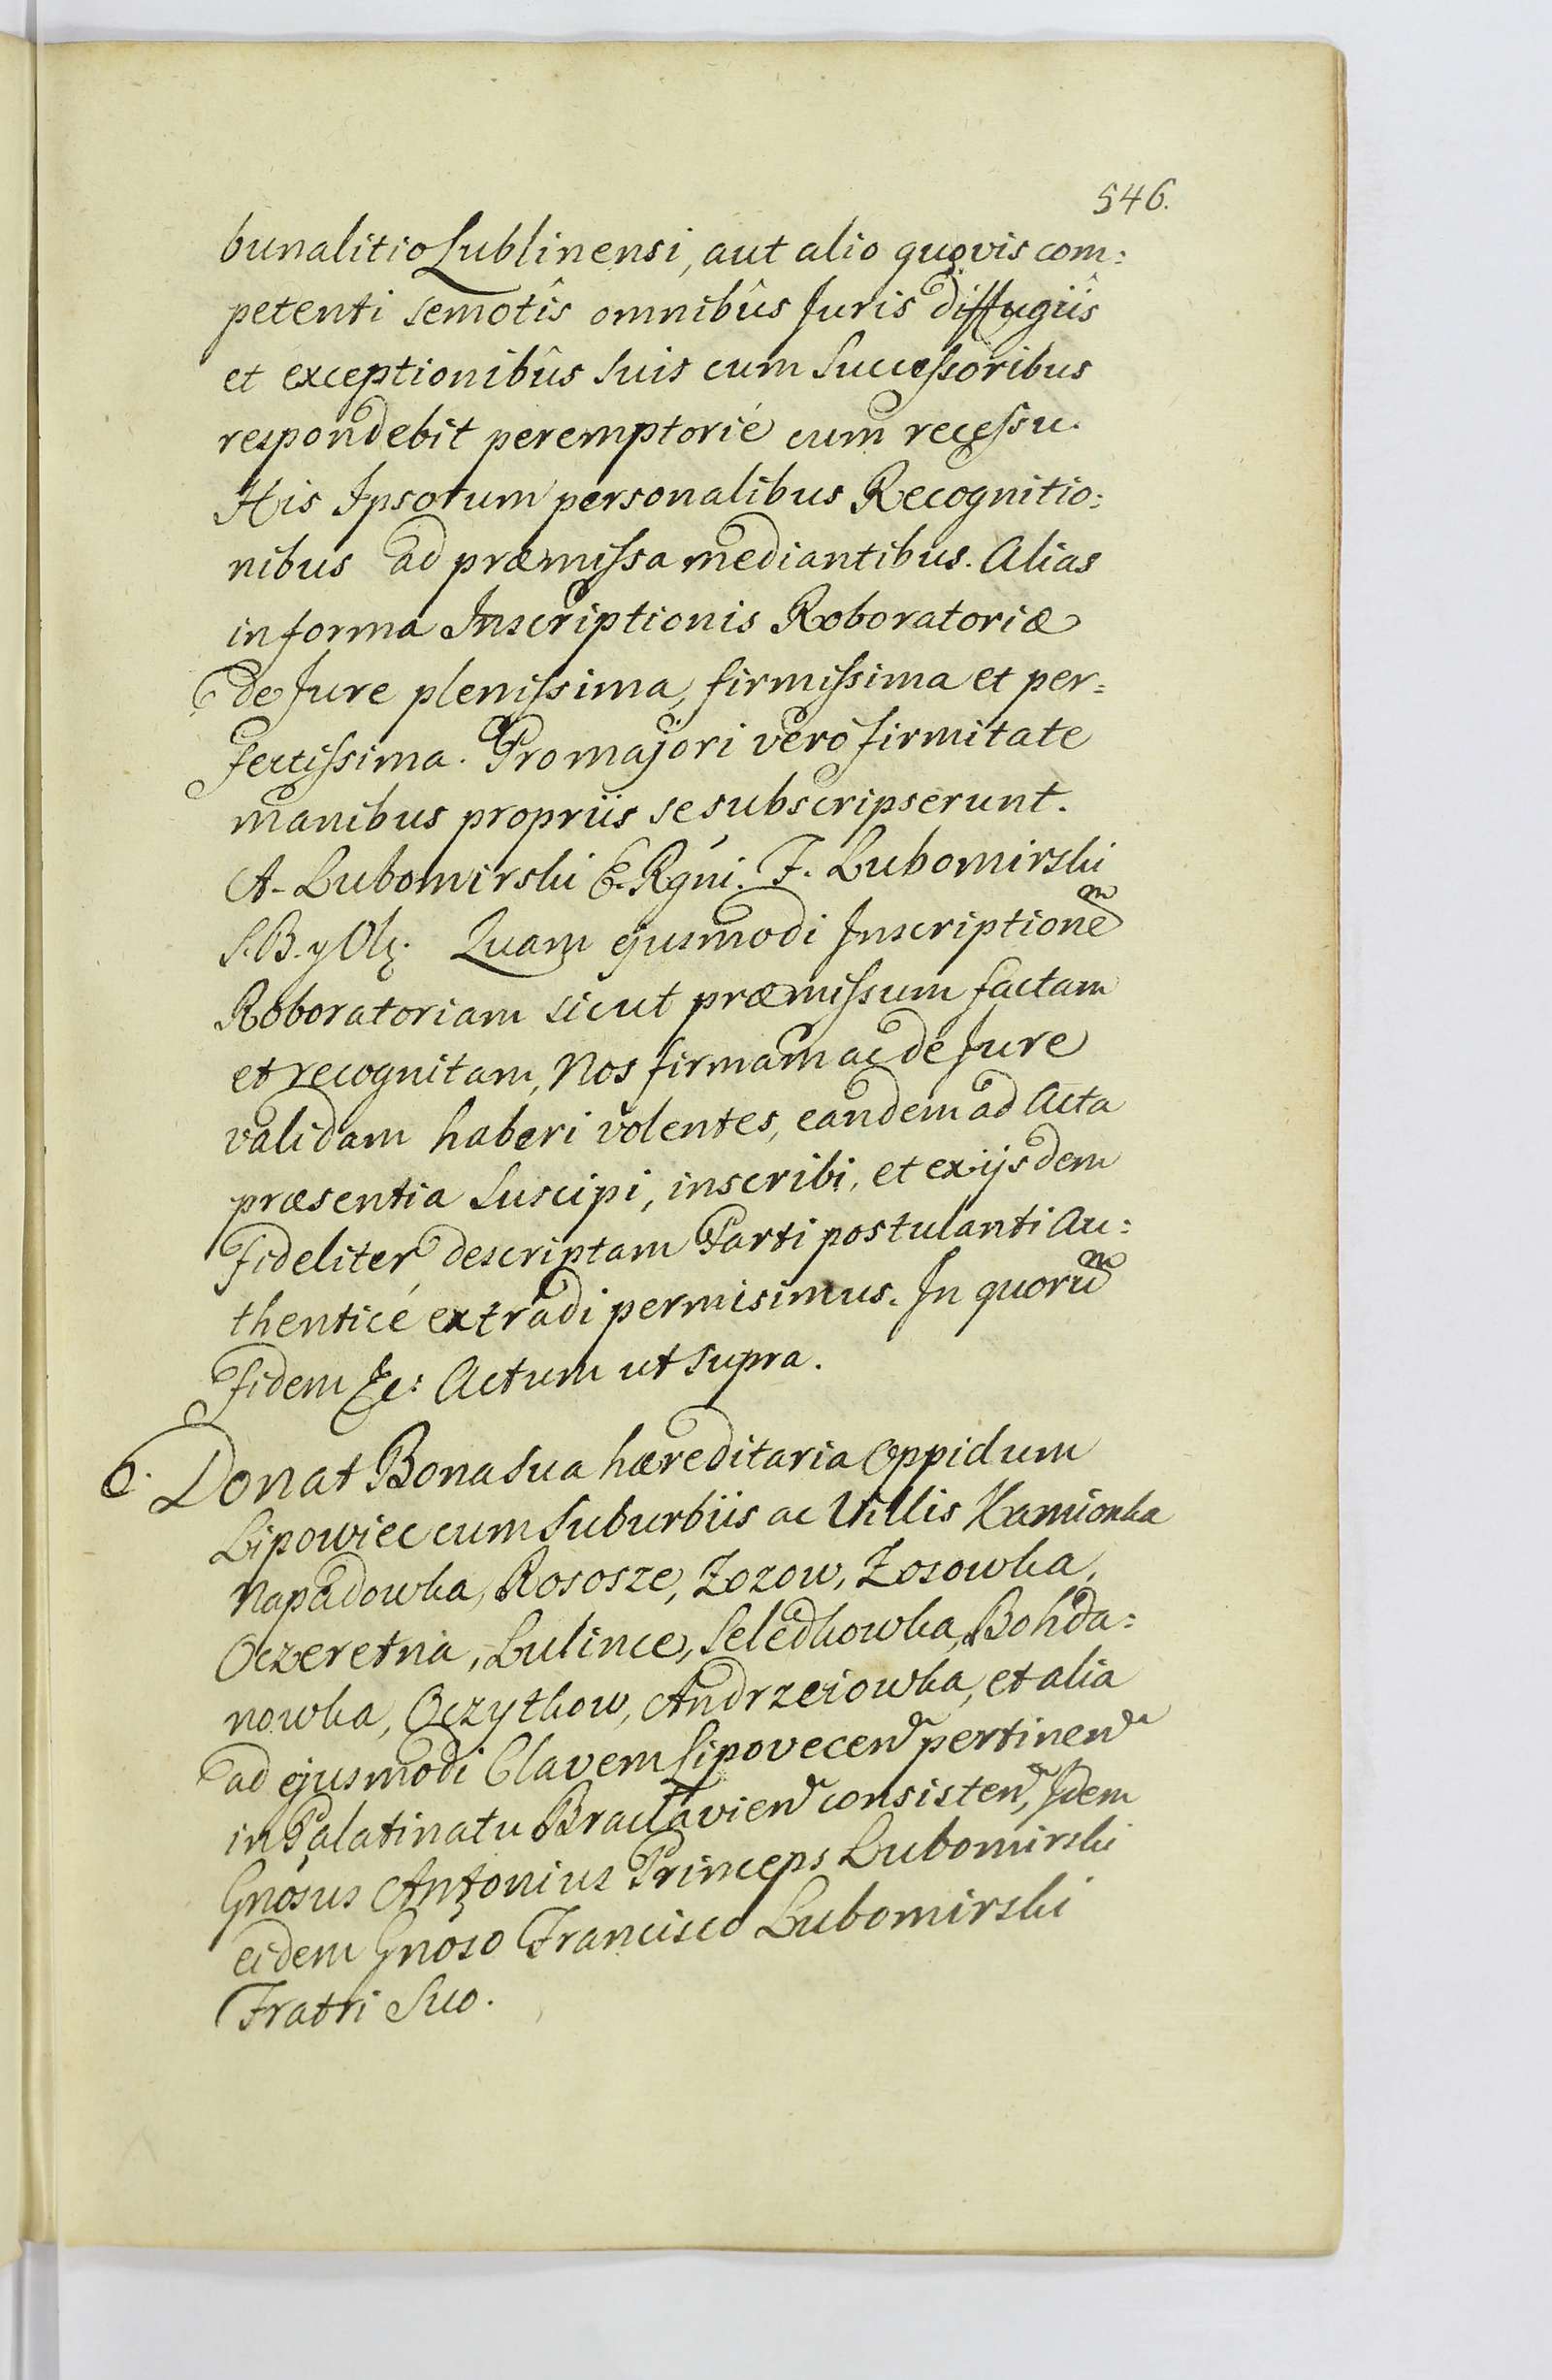 546.
bunalitio Lublinensi, aut alio quovis com:
petenti semotîs omnibûs Juris diffugiîs
et exceptionibûs suis cum Successoribus
respondebit peremptorié cum recessu.
His Ipsorum personalibus Recognitio:
nibus ad præmissa mediantibus. Alias
in forma Inscriptionis Roboratoriæ
de Jure plenissima, firmissima et per=
fectissima. Pro majori veró firmitate
manibus propriis se subscripserunt.
A. Lubomirski E. Rgni. F. Lubomirski
S. B. y Ol. Quam ejusmodi Inscriptionem
Roboratoriam sicut præmissum factam
et recognitam, Nos firmam ac de Jure
validam haberi volentes, eandem ad Acta
præsentia suscipi, inscribi, et ex ijsdem
fideliter descriptam Parti postulanti au:
thenticé extradi permisimus. In quorum
fidem &c: Actum ut supra.
6. Donat Bona sua hæreditaria Oppidum
Lipowiec cum suburbiis ac Villis Kamionka
Napadowka, Rososze, Zozow, Zosowka,
Oczeretnia, Lulince, Seledkowka, Bohda:
nowka, Oczytkow, Andrzeiowka, et alia
ad ejusmodi Clavem Lipovecen pertinen
in Palatinatu Braclavien consisten, Idem
Gnosus Antonius Princeps Lubomirski
eidem Gnoso Francisco Lubomirski
Fratri Suo.